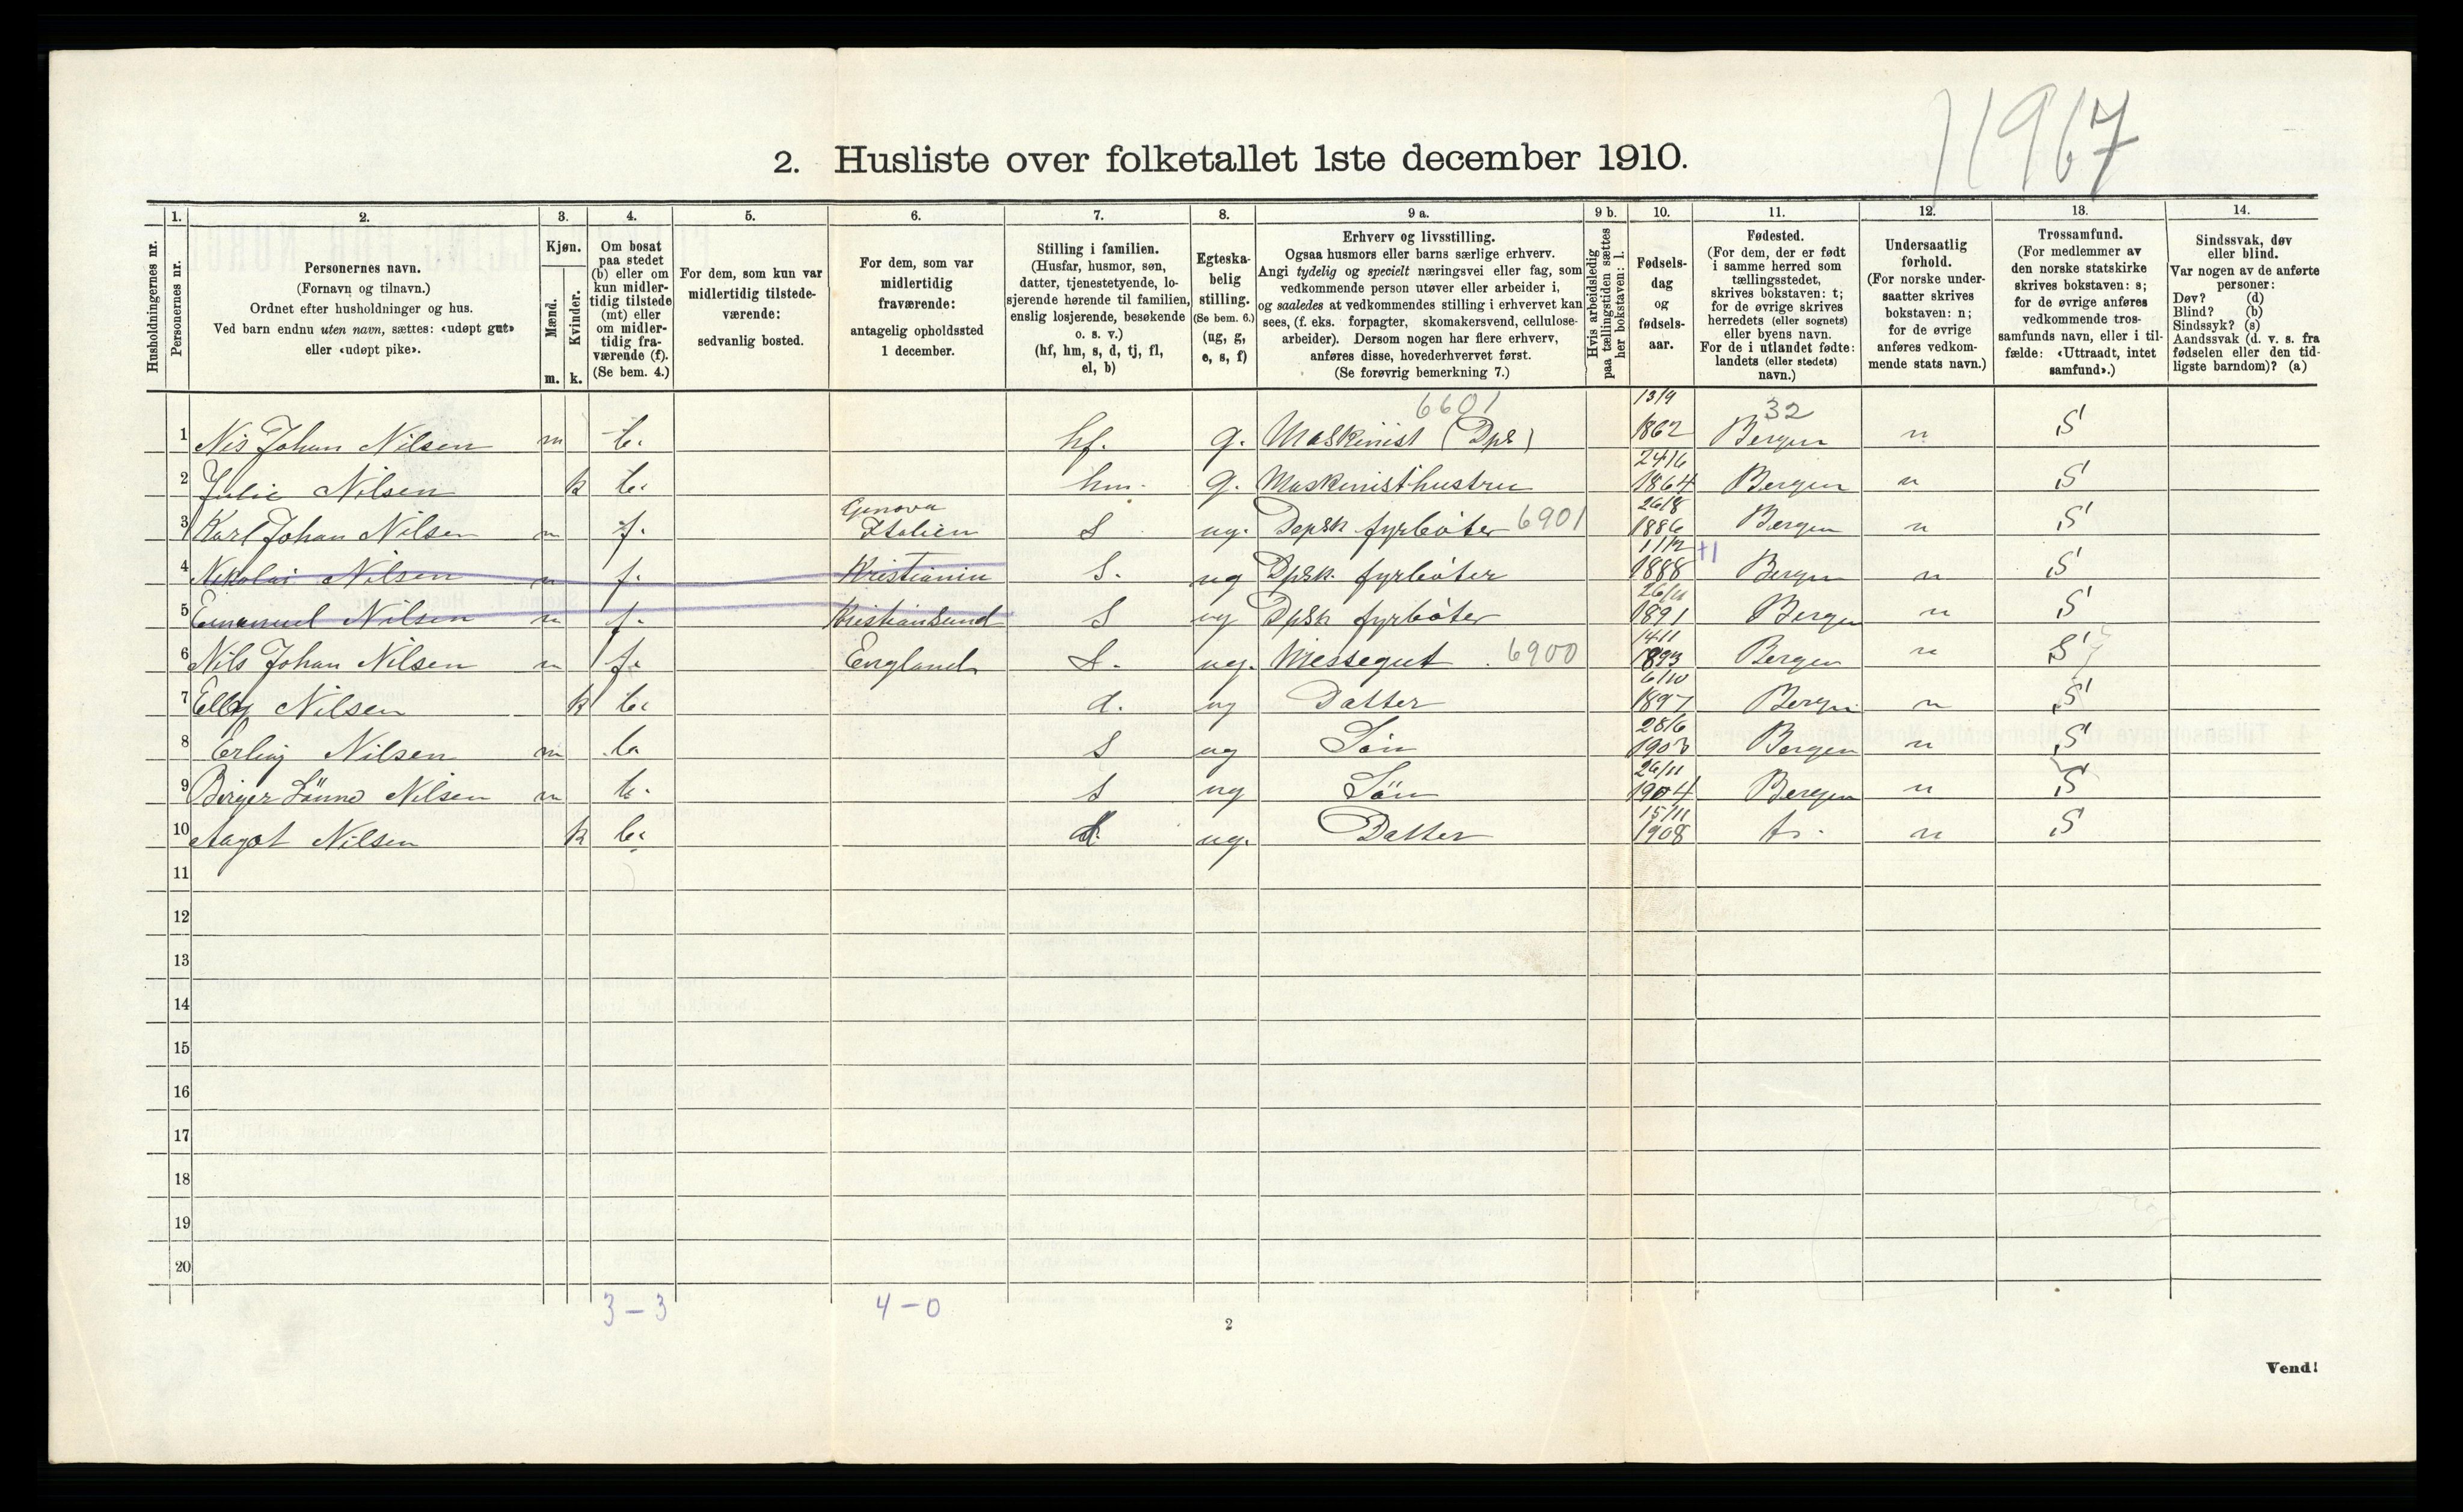 11967
2. Husliste over folketallet 1ste december 1910.
Husholdningernes nr.
1. Personernes nr.
2. Personernes navn.
(Fornavn og tilnavn.)
Ordnet efter husholdninger og hus.
Ved barn endnu uten navn, sættes: «udøpt gut»
eller «udøpt pike».
3. Kjøn.
Mænd. m.
Kvinder. k.
4. Om bosat
paa stedet
(b) eller om
kun midler-
tidig tilstede
(mt) eller
om midler-
tidig fra-
værende (f).
(Se bem. 4.)
5. For dem, som kun var
midlertidig tilstede-
værende:
sedvanlig bosted.
6. For dem, som var
midlertidig
fraværende:
antagelig opholdssted
1 december.
7. Stilling i familien.
(Husfar, husmor, søn,
datter, tjenestetyende, lo-
sjerende hørende til familien,
enslig losjerende, besøkende
o. s. v.)
(hf, hm, s, d, tj, fl,
el, b)
8. Egteska-
belig
stilling.
(Se bem. 6.)
(ug, g,
e, s, f)
9 a. Erhverv og livsstilling.
Ogsaa husmors eller barns særlige erhverv.
Angi tydelig og specielt næringsvei eller fag, som
vedkommende person utøver eller arbeider i,
og saaledes at vedkommendes stilling i erhvervet kan
sees, (f. eks. forpagter, skomakersvend, cellulose-
arbeider). Dersom nogen har flere erhverv,
anføres disse, hovederhvervet først.
(Se forøvrig bemerkning 7.)
9 b. Hvis arbeidsledig
paa tællingstiden sættes
her bokstaven: l.
10. Fødsels-
dag
og
fødsels-
aar.
11. Fødested.
(For dem, der er født
i samme herred som
tællingsstedet,
skrives bokstaven: t;
for de øvrige skrives
herredets (eller sognets)
eller byens navn.
For de i utlandet fødte:
landets (eller stedets)
navn.)
12. Undersaatlig
forhold.
(For norske under-
saatter skrives
bokstaven: n;
for de øvrige
anføres vedkom-
mende stats navn.)
13. Trossamfund.
(For medlemmer av
den norske statskirke
skrives bokstaven: s;
for de øvrige anføres
vedkommende tros-
samfunds navn, eller i til-
fælde: «Uttraadt, intet
samfund».)
14. Sindssvak, døv
eller blind.
Var nogen av de anførte
personer:
Døv? (d)
Blind? (b)
Sindssyk? (s)
Aandssvak (d. v. s. fra
fødselen eller den tid-
ligste barndom)? (a)
6601 13/9 32
1 Nis Johan Nilsen m b. hf. g. Maskinist (Dps) 1862 Bergen n S
24/6
2 Julie Nilsen k b. hm. g. Maskinisthustru 1864 Bergen n S
Genova 26/8
3 Karl Johan Nilsen m f. Italien S ug. Dapsk fyrbøter 6901 1886 Bergen n S
11/2 +1
4 Nikolai Nilsen m f. Kristiania S. ug Dpsk. fyrbøter 1888 Bergen n S
26/11
5 Emanuel Nilsen m f. Kristiansund S ug Dpsk fyrbøter 1891 Bergen n S
14/11
6 Nils Johan Nilsen m f. England S. ug. Messegut 6900 1893 Bergen n S
6/10
7 Elly Nilsen k b. d. ug Datter 1897 Bergen n S
28/6
8 Erling Nilsen m b. S ug Søn 1903 Bergen n S
26/11
9 Birger Lönne Nilsen m b. S ug Søn 1904 Bergen n S
15/11
10 Aagot Nilsen k b. d. ug. Datter 1908 t. n S
11
12
13
14
15
16
17
18
19
20
3-3 4-0
2
Vend!